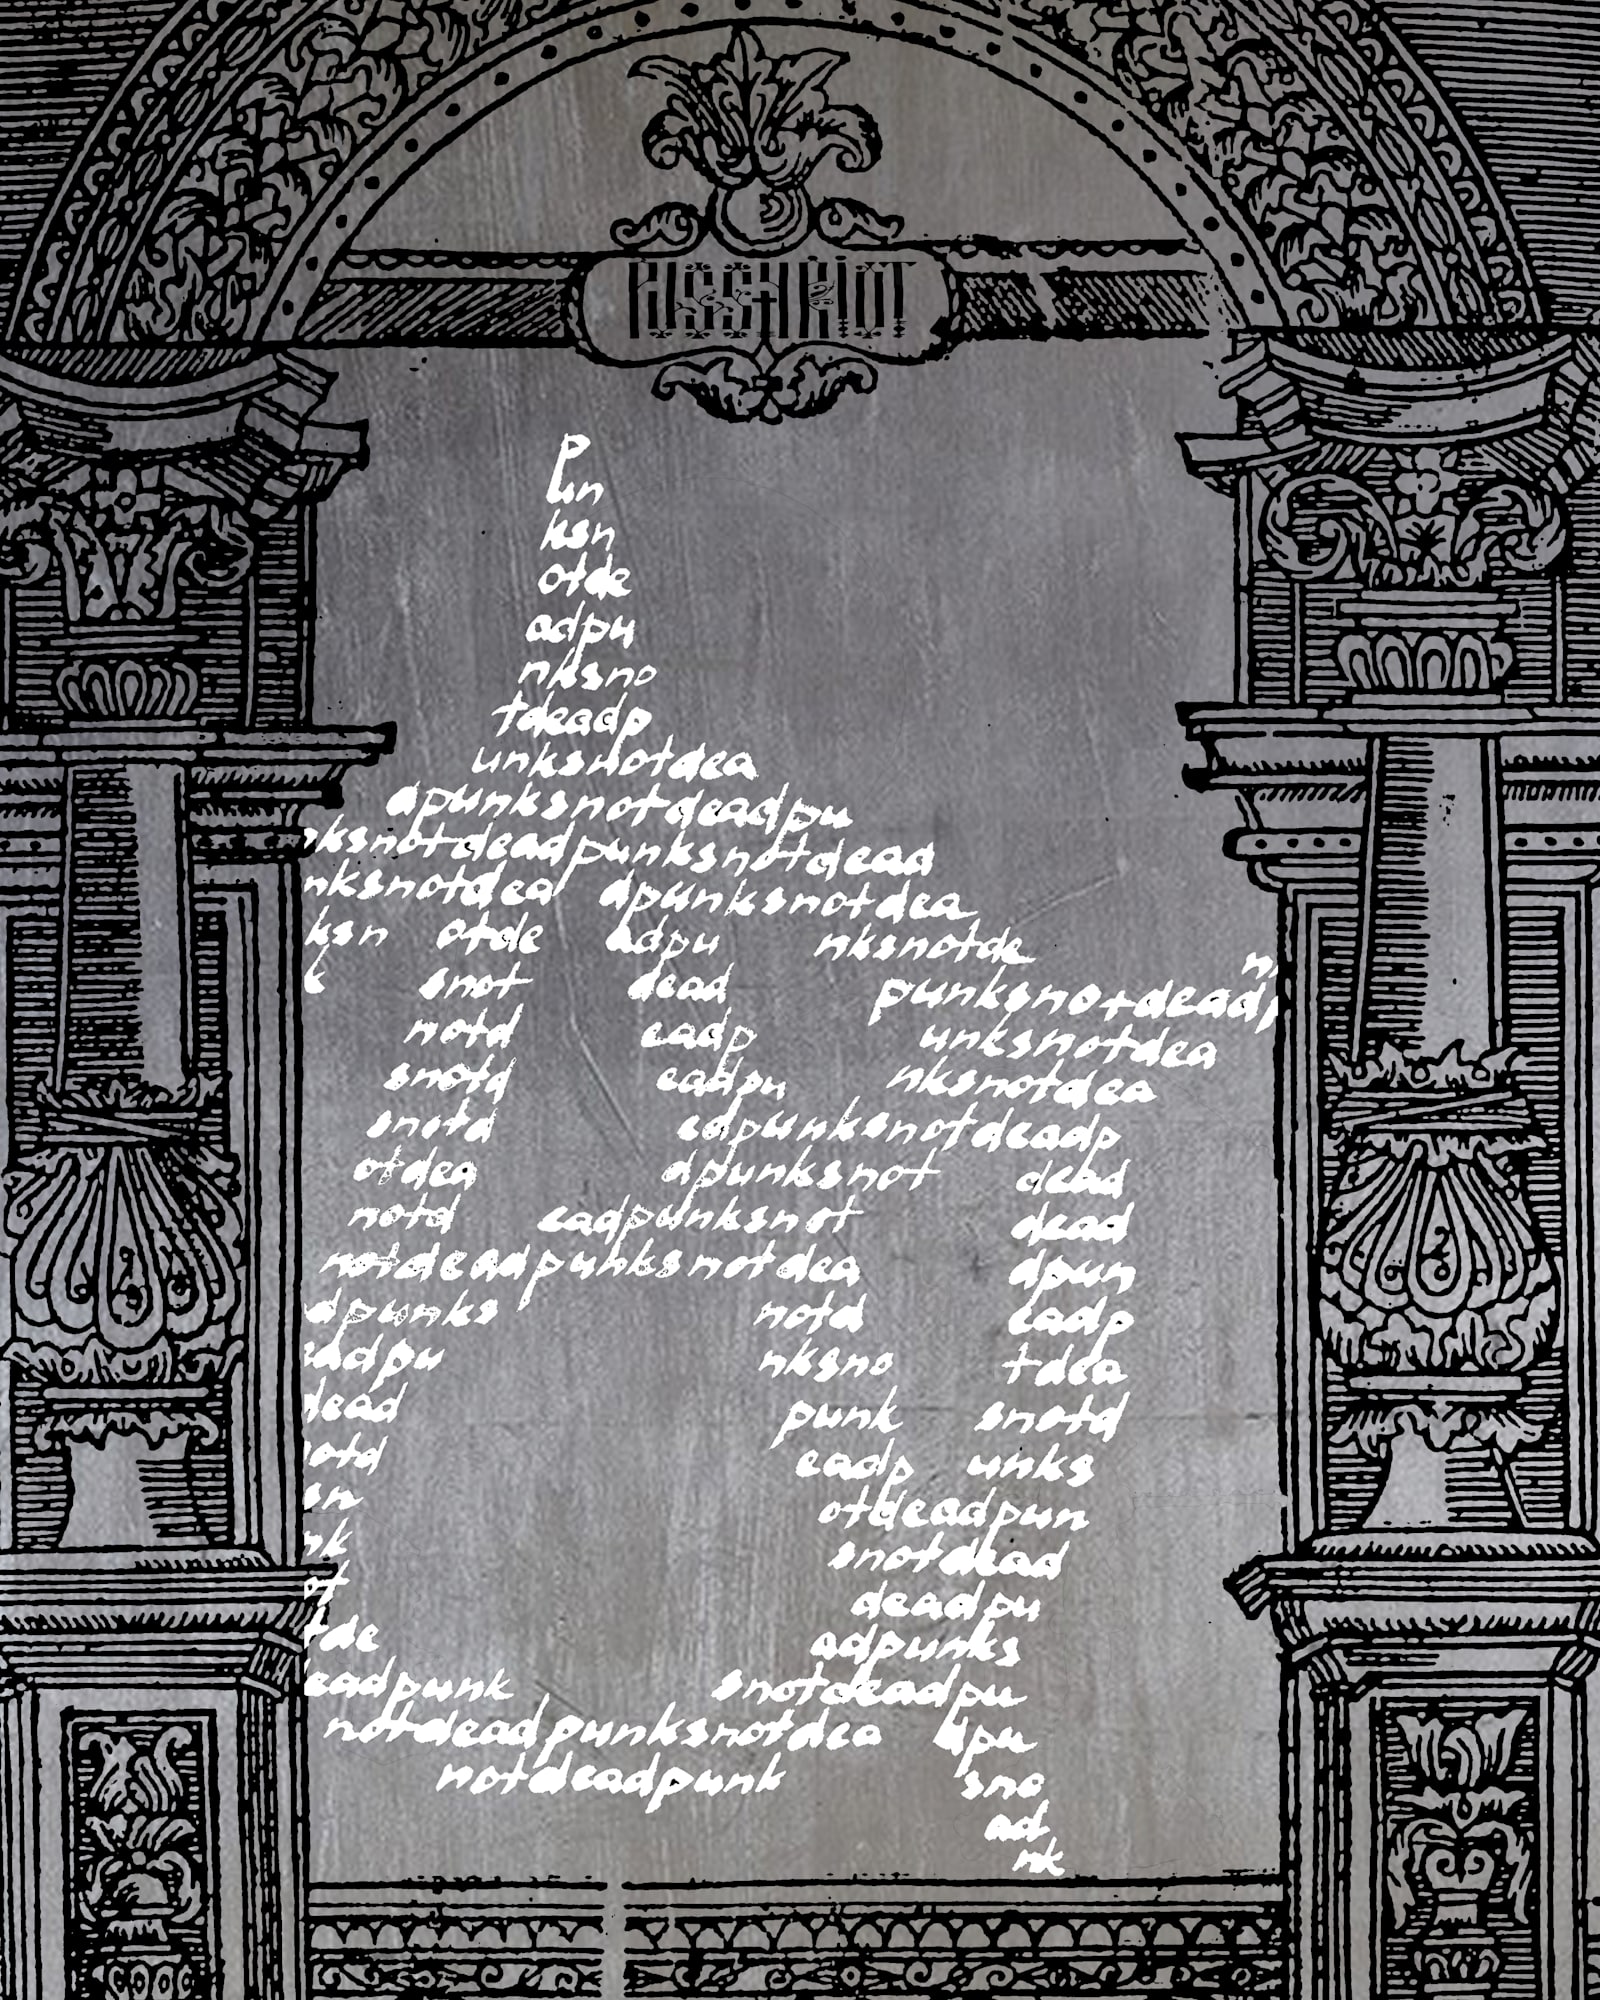 P
un
ksn
otde
adpu
nksno
tdeadp
unksnotdea
dpunksnotdeadpu
nksnotdeadpunksnotdead
nksnotdea dpunksnotdea
ksn otde adpu nksnotde
snot dead punksnotdeadp
notd eadp unksnotdea
snotd eadpu nksnotdea
snotd edpunksnotdeadp
otdea dpunksnot dead
notd eadpunksnot dead
notdeadpunksnotdea dpun
dpunks notd eadp
adpu nksno tdea
dead punk snotd
otd eadp unks
sn otdeadpun
nk snotdead
ot deadpu
tde adpunks
eadpunk snotdeadpu
notdeadpunksnotdea dpu
notdeadpunk sno
ad
nk